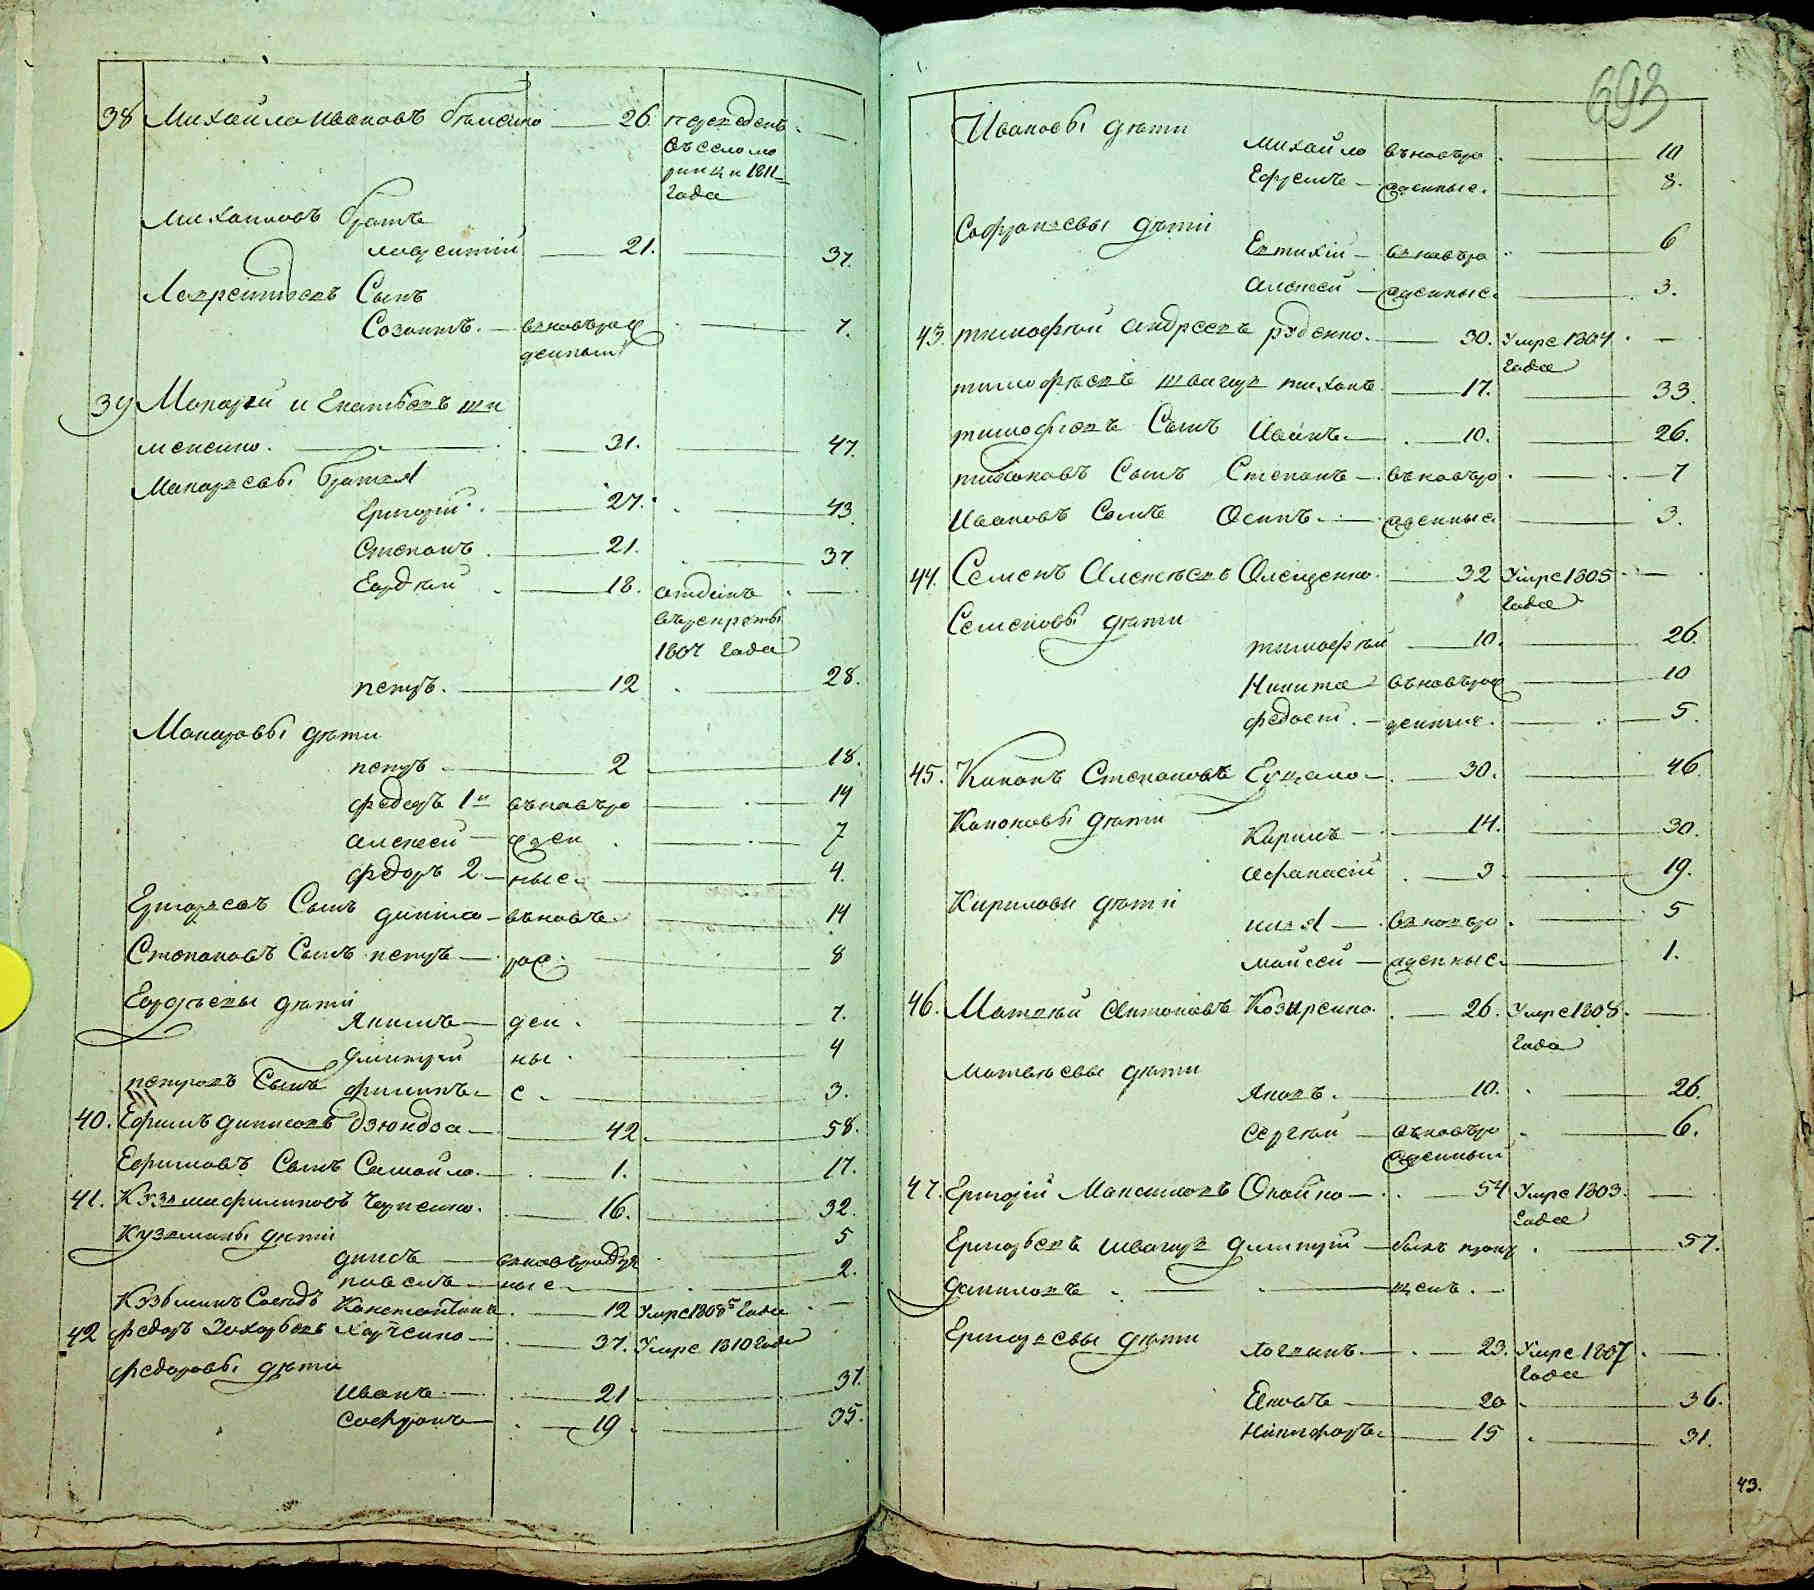 38 Михайло Ивановъ 26 переведенъ
въ село
1811
года
Михаиловъ братъ
Лаврентий 21. 37.
Лаврентьевъ Сынъ
Созонтъ. вновьрож 7.
денный
39 Макарий и Екатовъ
менсико. 31. 47.
Макариевы братья
Григорий 27. 43
Степанъ 21. 37
Гордѣй 18. отданъ
въ рекруты
1807 года
петръ. 12 28.
Макаровы дѣти
петръ 2 18.
федоръ 1й вновьро 14
Алексей жден 7
федоръ 2 ные 4.
Григорьевъ Сынъ данило вновь 14
Степановъ Сынъ петръ рож 8
Гордѣевы дѣти
Якимъ ден 7.
дмитрий ны 4
петровъ Сынъ филипъ е 3.
40. Ефимъ Денисовъ Дзюндза 42 58.
Ефимовъ Сынъ Самойло 1. 17.
41. Кузма Филиповъ 16. 32.
Кузмины дѣти 5
Денисъ вновьрожде
павелъ ные 2.
Кузьминъ Сосѣдъ Константинъ 12 Умре 1808 Года
42 федоръ Захарьевъ Харченко 37. Умре 1810 Года
федоровы дѣти
Иванъ 21 37.
Сафронъ 19 35.
693
Ивановы дѣти
Михайло вновьро 10
Ефремъ жденные. 8.
Софроновы дѣти
Евтихий вновьро 6
Алексей жденные 3.
43. тимофѣй Андреевъ руденко. 30. Умре 1804
Года
тимофѣевъ швагер тихонъ 17. 33.
тимофѣевъ Сынъ Иванъ. 10. 26.
тихоновъ Сынъ Степанъ вновьро 7
Ивановъ Сынъ Осипъ. жденные 3.
44. Семенъ Алексѣевъ Олещенко 32 Умре 1805
Года
Семеновы дѣти
тимофѣй 10. 26.
Никита вновьрож 10
федосѣй денные. 5.
45. Кононъ Степановъ 30. 46.
Кононовы дѣти
Кирилъ 14. 30.
Афанасий 3 19.
Кириловы дѣти
илья вновьро 5
Мойсей жденные 1.
46. Матвѣй Антоновъ Козиренко. 26. Умре 1808.
Года
Матвѣевы дѣти
Яковъ. 10. 26.
Сергѣй вновьро 6.
жденный
47. Григорий Максимовъ 54 Умре 1803.
Года
Григорьевъ швагер Дмитрий былъ пропу 57.
Даниловъ щенъ.
Григорьевы дѣти
Логвинъ 23. Умре 1807
Года
Яковъ 20 36.
Никифоръ 15 31.
43.